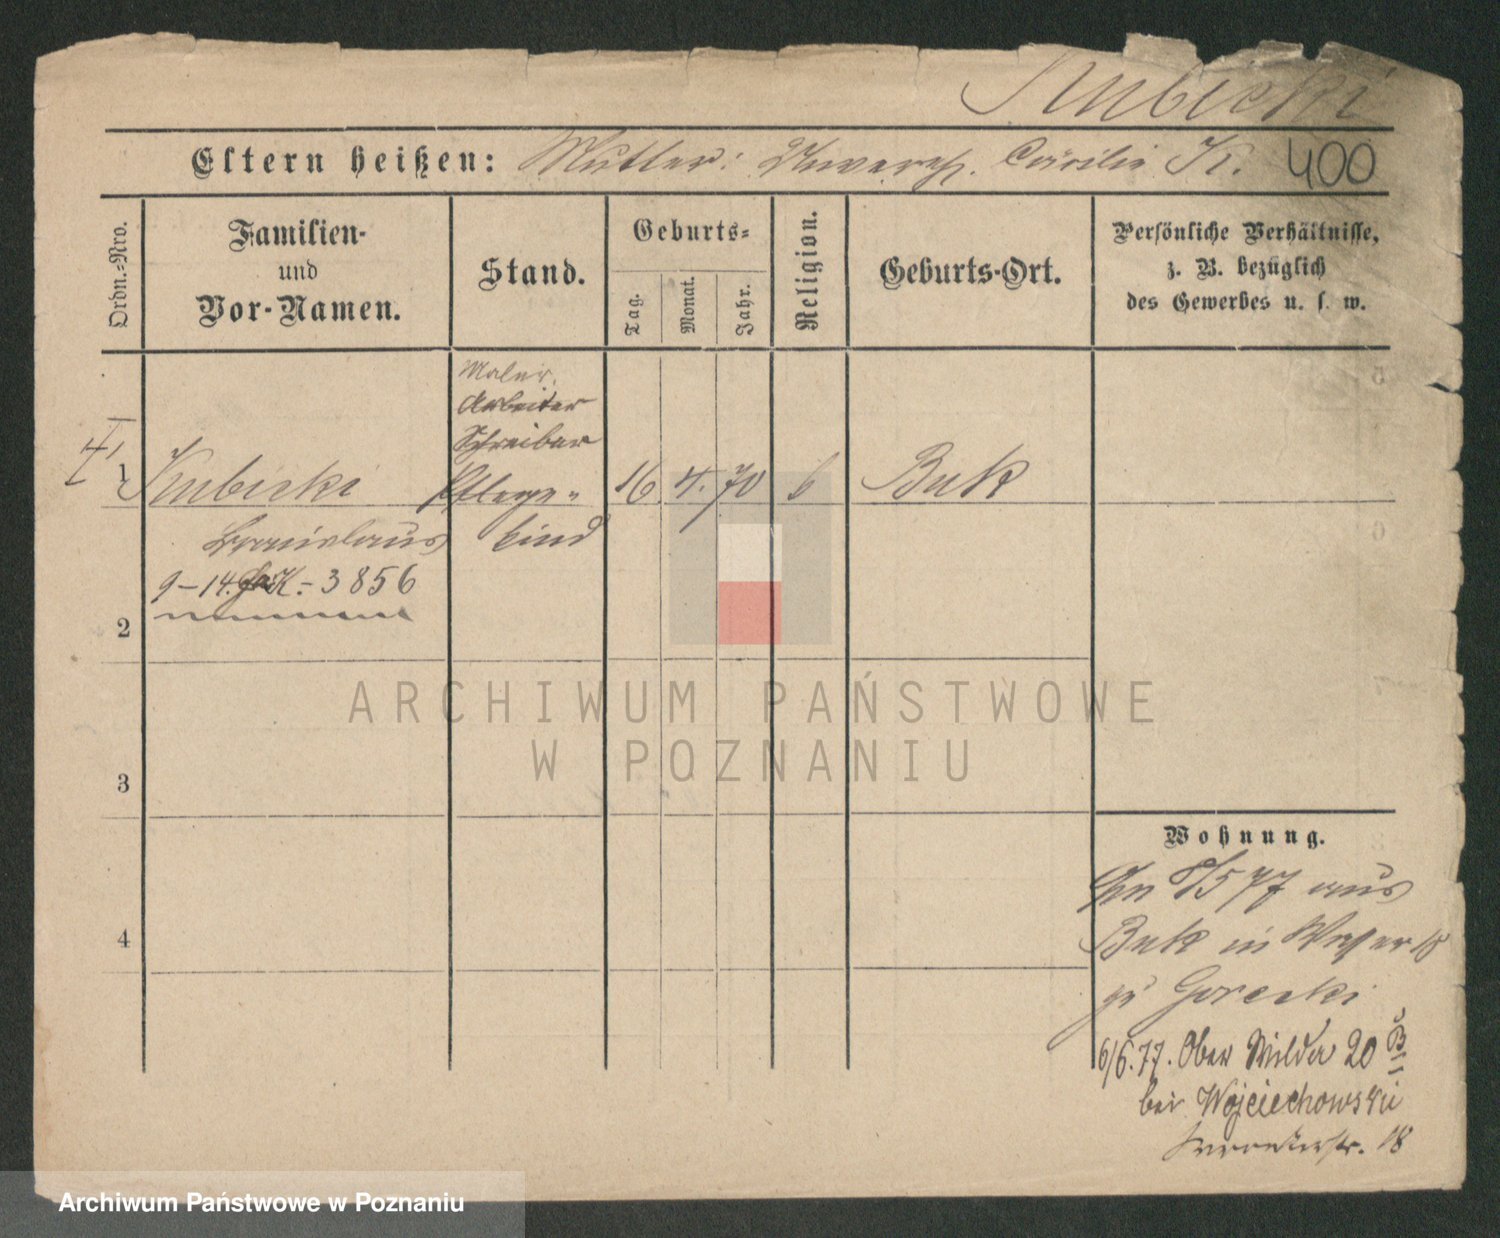 Kubicki
Eltern heißen: Mutter: Unverh. Cäcilie K. 400
Ordn.-Nro.
Familien-
und
Vor-Namen.
Stand.
Geburts-
Tag.
Monat.
Jahr.
Religion.
Geburts-Ort.
Persönliche Verhältnisse,
z. B. bezüglich
des Gewerbes u. s. w.
Maler.
Arbeiter
Schreiber
1 Kubicki Pflege- 16. 4. 70 Buk
Bronislaus kind
9-14. K.-3856
2
3
4
Wohnung.
77 aus
Buk in 18
zu Gorecki
6/6.77. Ober Wilda 20 B
bei Wojciechowski
18
ARCHIWUM PAŃSTWOWE
W POZNANIU
Archiwum Państwowe w Poznaniu